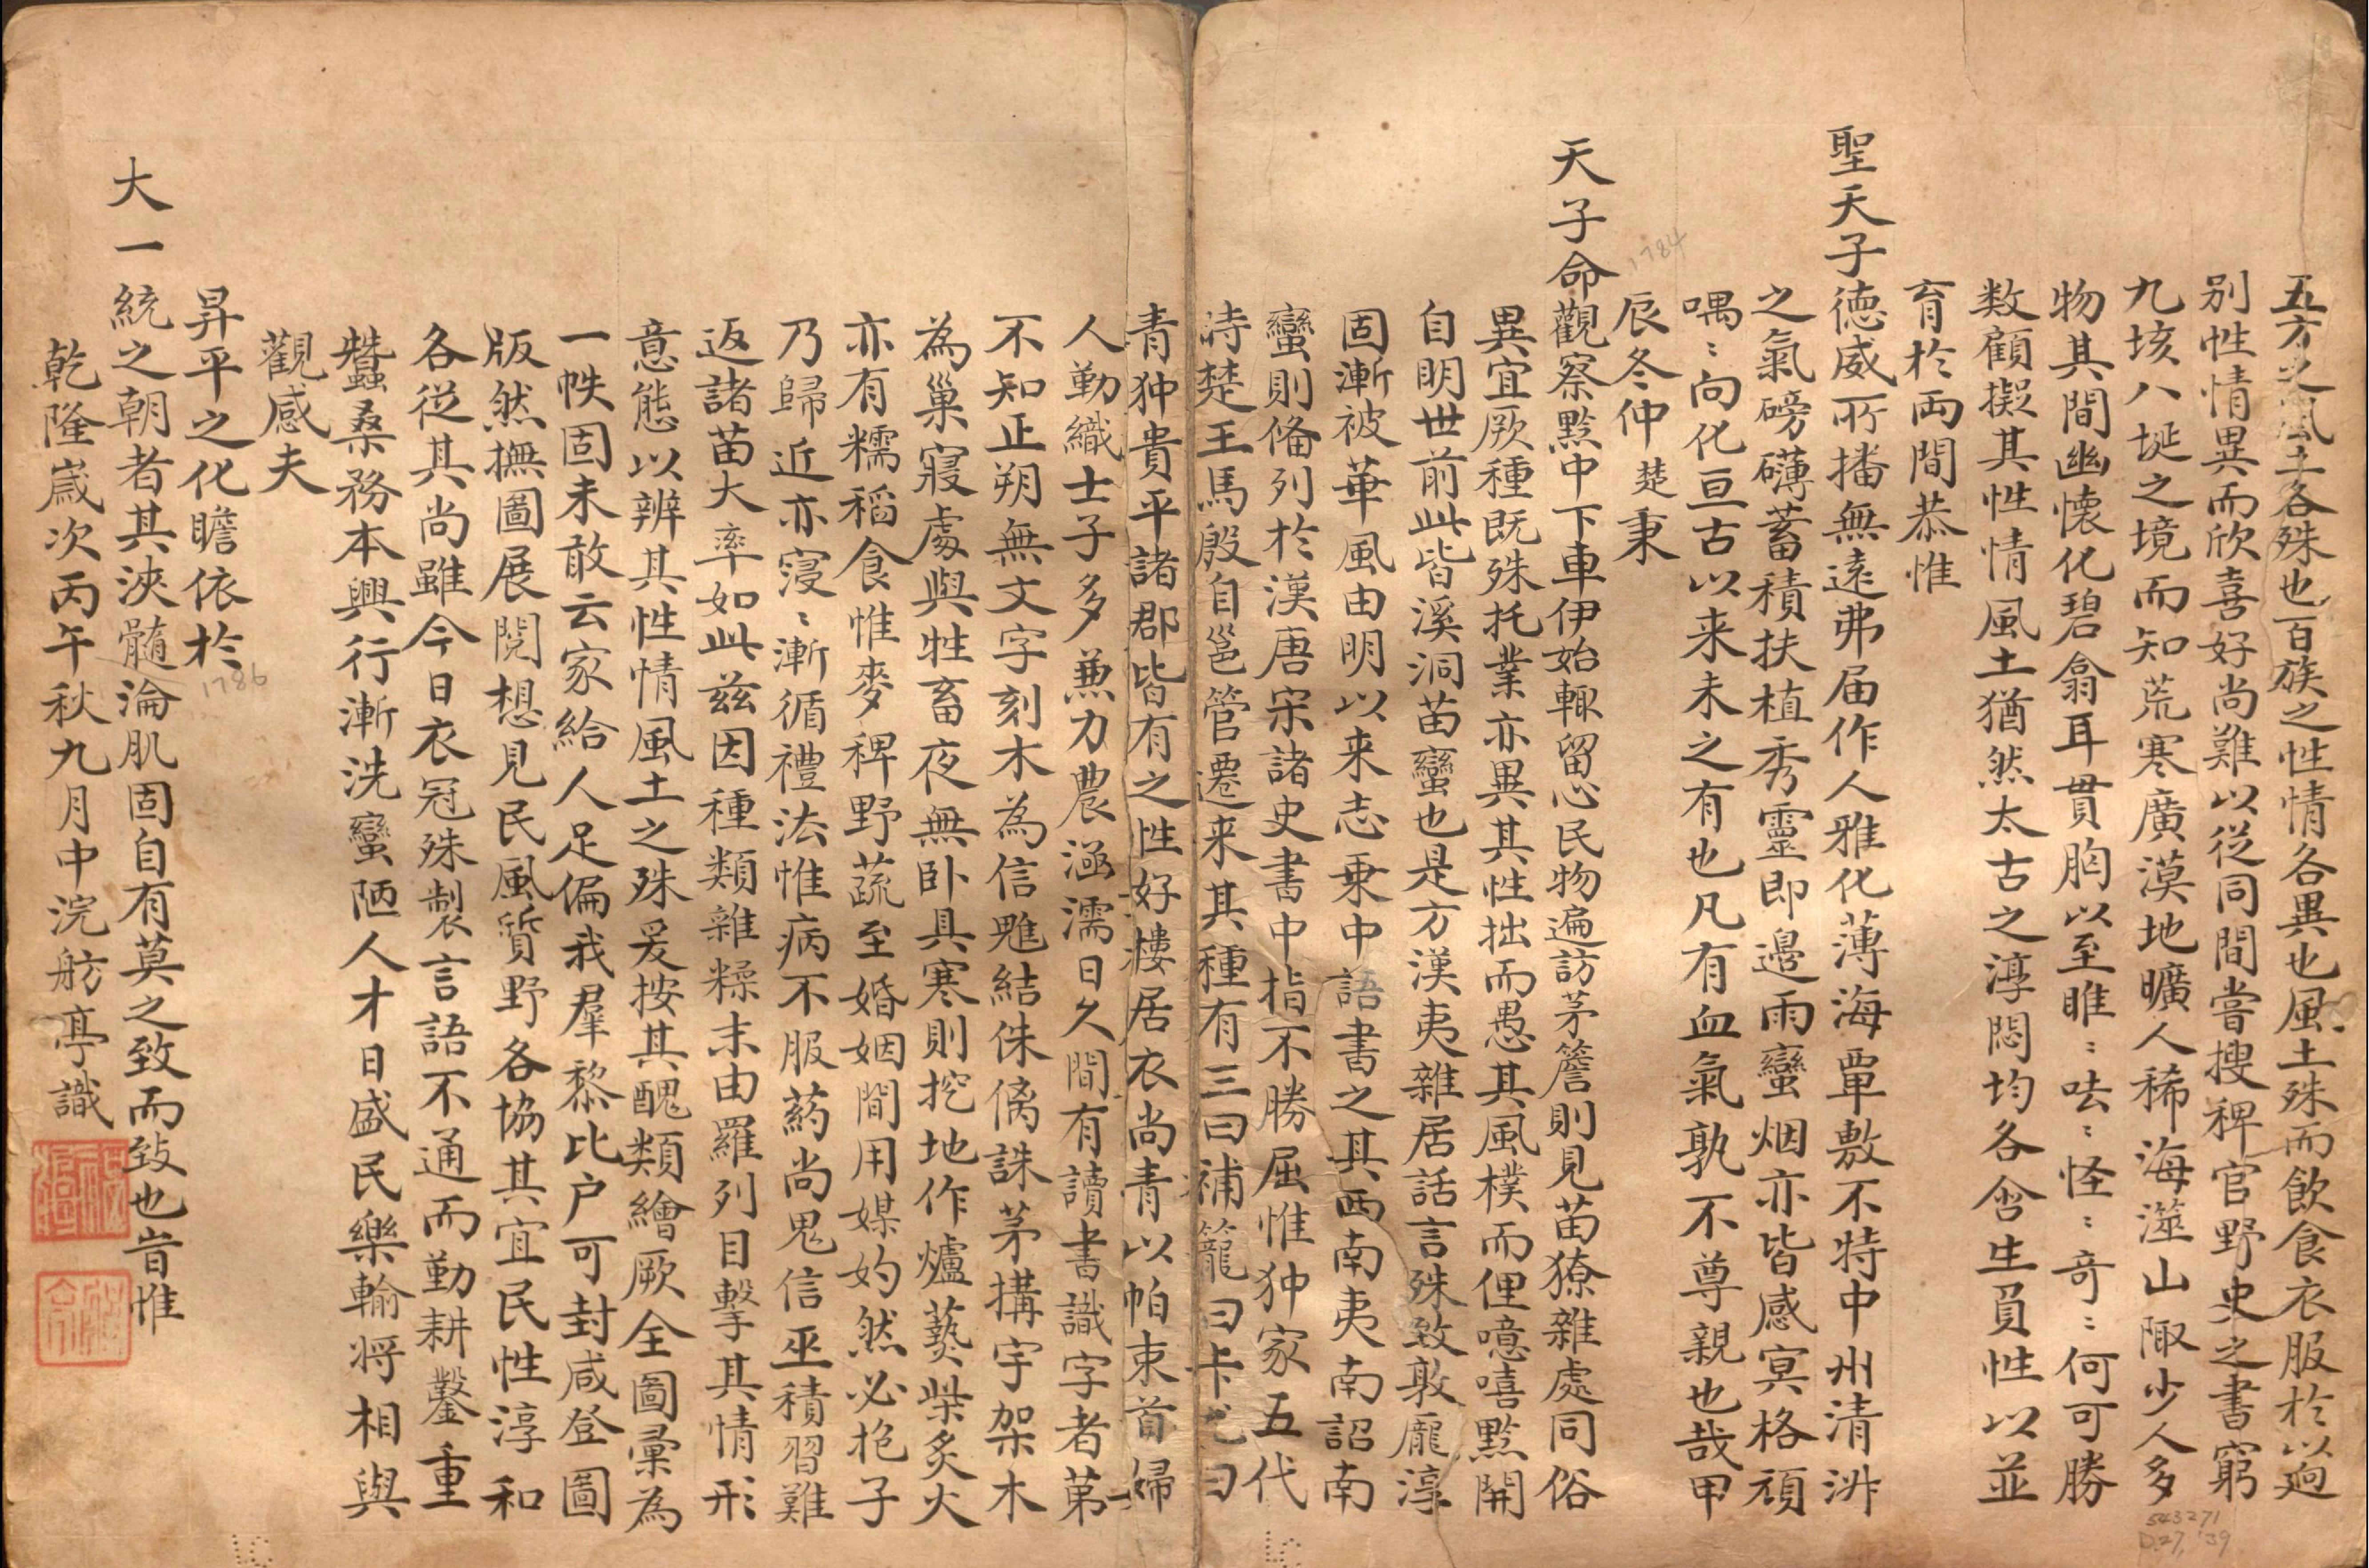 五方之風土各殊也百族之性情各異也風土殊而飲食衣服於以逈
别性情異而欣喜好尚難以從同間嘗搜稗官野史之書窮
九垓八埏之境而知荒寒廣漠地曠人稀海澨山陬少人多
物其間幽懷化碧翕耳貫胸以至睢〻呿〻怪〻奇〻何可勝
数顧擬其性情風土猶然太古之淳悶均各含生負性以並
育於両間恭惟
聖天子德威所播無遠弗届作人雅化薄海覃敷不特中州清淑
之氣磅礴蓄積扶植秀靈即邉雨蠻烟亦皆感冥格頑
喁〻向化亘古以来未之有也凡有血氣孰不尊親也哉甲
辰冬仲楚秉
天子命觀察黔中下車伊始輙留心民物遍訪茅簷則見苗獠雜處同俗
異宜厥種既殊托業亦異其性拙而愚其風樸而俚噫嘻黔開
自明世前此皆溪洞苗蠻也是方漢夷雜居話言殊致敦龐淳
固漸被華風由明以来志乗中語書之其西南夷南詔南
蠻則俻列於漢唐宋諸史書中指不勝屈惟狆家五代
時楚王馬殷自邕管遷来其種有三曰補籠曰卡尤曰
青狆貴平諸郡皆有之性好樓居衣尚青以帕束首婦
人勤織士子多兼力農涵濡日久間有讀書識字者苐
不知正朔無文字刻木為信魋結侏㒧誅茅搆宇架木
為巢寢處與牲畜夜無卧具寒則挖地作爐爇柴炙火
亦有糯稻食惟麥稗野蔬至婚姻間用媒妁然必抱子
乃歸近亦寖〻漸循禮法惟病不服葯尚鬼信巫積習難
返諸苗大率如此兹因種類雜糅末由羅列目擊其情形
意態以辨其性情風土之殊爰按其醜類繪厥全圖彙為
一帙固未敢云家給人足偏我羣黎比户可封咸登圖
版然撫圖展閲想見民風質野各協其宜民性淳和
各從其尚雖今日衣冠殊製言語不通而勤耕鑿重
蠶桑務本興行漸洗蠻陋人才日盛民樂輸将相與
觀感夫
昇平之化瞻依於
大一統之朝者其浹髓淪肌固自有莫之致而致也旹惟
乾隆嵗次丙午秋九月中浣舫亭識
1784
1786
543271
D.27,'39
LC
LC